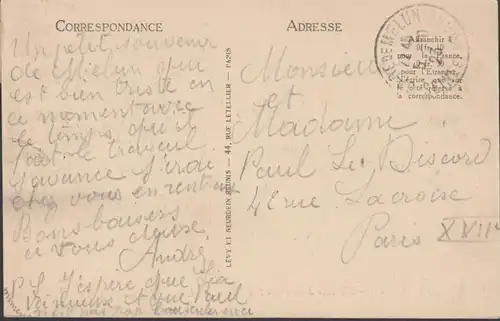 CORRESPONDANCE
Un petit souvenir
de Melun qui
est bien triste en
ce moment avec
le temps qu'il
fait le travail
avance J'irai
chez vous en rentrant
Bons baisers
à vous deux
André
P.S. J'espère que
et que Paul
n'est pas par
LÉVY ET NEURDEIN RÉUNIS - 44, RUE LETELLIER - PARIS
ADRESSE
MELUN
Affranchir à
0 fr. 10
pour la France,
pour l'Étranger
à la correspondance.
Monsieur
et
Madame
Paul Le Discord
42 rue Lacroix
Paris XVIIe